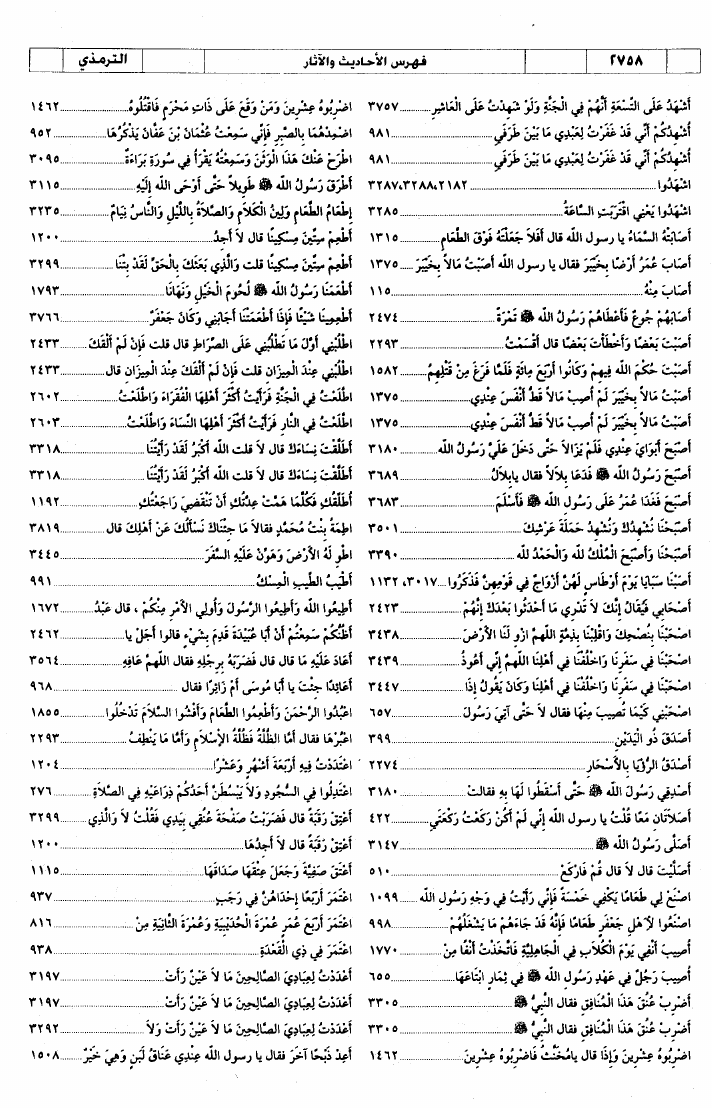 ٢٧٥٨
فهرس الأحاديث والآثار
الترمذي
أَشْهَدُ عَلَى التِّسْعَةِ أَنَّهُمْ فِي الْجَنَّةِ وَلَوْ شَهِدْتُ عَلَى الْعَاشِرِ ٣٧٥٧
أُشْهِدُكُمْ أَنِّي قَدْ غَفَرْتُ لِعَبْدِي مَا بَيْنَ طَرَفَيِ ٩٨١
أُشْهِدُكُمْ أَنِّي قَدْ غَفَرْتُ لِعَبْدِي مَا بَيْنَ طَرَفَيِ ٩٨١
اشْهَدُوا ٢١٨٢، ٣٢٨٨، ٣٢٨٧
اشْهَدُوا يَعْنِي اقْتَرَبَتِ السَّاعَةُ ٣٢٨٥
أَصَابَتْهُ السَّمَاءُ يا رسول الله قال أَفَلَا جَعَلْتَهُ فَوْقَ الطَّعَامِ ١٣١٥
أَصَابَ عُمَرُ أَرْضًا بِخَيْبَرَ فقال يا رسول الله أَصَبْتُ مَالاً بِخَيْبَرَ ١٣٧٥
أَصَابَ مِنْهُ ١١٥
أَصَابَهُمْ جُوعٌ فَأَعْطَاهُمْ رَسُولُ الله ﷺ تَمْرَةً ٢٤٧٤
أَصَبْتَ بَعْضًا وَأَخْطَأْتَ بَعْضًا قال أَقْسَمْتُ ٢٢٩٣
أَصَبْتَ حُكْمَ الله فِيهِمْ وَكَانُوا أَرْبَعَ مِائَةٍ فَلَمَّا فَرَغَ مِنْ قَتْلِهِمُ ١٥٨٢
أَصَبْتُ مَالاً بِخَيْبَرَ لَمْ أُصِبْ مَالاً قَطُّ أَنْفَسَ عِنْدِي ١٣٧٥
أَصَبْتُ مَالاً بِخَيْبَرَ لَمْ أُصِبْ مَالاً قَطُّ أَنْفَسَ عِنْدِي ١٣٧٥
أَصْبَحَ أَبَوَايَ عِنْدِي فَلَمْ يَزَالَا حَتَّى دَخَلَ عَلَيَّ رَسُولُ الله ٣١٨٠
أَصْبَحَ رَسُولُ الله ﷺ فَدَعَا بِلَالاً فقال يابِلَالُ ٣٦٨٩
أَصْبَحَ فَغَدَا عُمَرُ عَلَى رَسُولِ الله ﷺ فَأَسْلَمَ ٣٦٨٣
أَصْبَحْنَا نُشْهِدُكَ وَنُشْهِدُ حَمَلَةَ عَرْشِكَ ٣٥٠١
أَصْبَحْنَا وَأَصْبَحَ الْمُلْكُ لله وَالْحَمْدُ لله ٣٣٩٠
أَصَبْنَا سَبَايَا يَوْمَ أَوْطَاسٍ لَهُنَّ أَزْوَاجٌ فِي قَوْمِهِنَّ فَذَكَرُوا ٣٠١٧، ١١٣٢
أَصْحَابِي فَيُقَالُ إِنَّكَ لَا تَدْرِي مَا أَحْدَثُوا بَعْدَكَ إِنَّهُمْ ٢٤٢٣
اصْحَبْنَا بِنُصْحِكَ وَاقْلِبْنَا بِذِمَّةٍ اللهمَّ ازْوِ لَنَا الأَرْضَ ٣٤٣٨
اصْحَبْنَا فِي سَفَرِنَا وَاخْلُفْنَا فِي أَهْلِنَا اللهمَّ إِنِّي أَعُوذُ ٣٤٣٩
اصْحَبْنَا فِي سَفَرِنَا وَاخْلُفْنَا فِي أَهْلِنَا وَكَانَ يَقُولُ إِذَا ٣٤٤٧
اصْحَبْنِي كَيْمَا تُصِيبَ مِنْهَا فقال لَا حَتَّى آتِيَ رَسُولَ ٦٥٧
أَصَدَقَ ذُو الْيَدَيْنِ ٣٩٩
أَصْدَقُ الرُّؤْيَا بِالأَسْحَارِ ٢٢٧٤
أَصْدِقِي رَسُولَ الله ﷺ حَتَّى أَسْقَطُوا لَهَا بِهِ فقالت ٣١٨٠
أَصَلَاتَانِ مَعًا قُلْتُ يا رسول الله إِنِّي لَمْ أَكُنْ رَكَعْتُ رَكْعَتَيِ ٤٢٢
أَصَلَّى رَسُولُ الله ﷺ ٣١٤٧
أَصَلَّيْتَ قال لَا قال قُمْ فَارْكَعْ ٥١٠
اصْنَعْ لِي طَعَامًا يَكْفِي خَمْسَةً فَإِنِّي رَأَيْتُ فِي وَجْهِ رَسُولِ الله ١٠٩٩
اصْنَعُوا لِآَهْلِ جَعْفَرٍ طَعَامًا فَإِنَّهُ قَدْ جَاءَهُمْ مَا يَشْغَلُهُمْ ٩٩٨
أُصِيبَ أَنْفِي يَوْمَ الْكُلَابِ فِي الْجَاهِلِيَّةِ فَاتَّخَذْتُ أَنْفًا مِنْ ١٧٧٠
أُصِيبَ رَجُلٌ فِي عَهْدِ رَسُولِ الله ﷺ فِي ثِمَارٍ ابْتَاعَهَا ٦٥٥
أَضْرِبْ عُنُقَ هَذَا الْمُنَافِقِ فقال النَّبِيُّ ﷺ ٣٣٠٥
أَضْرِبْ عُنُقَ هَذَا الْمُنَافِقِ فقال النَّبِيُّ ﷺ ٣٣٠٥
اضْرِبُوهُ عِشْرِينَ وَإِذَا قال يامُخَنَّثُ فَاضْرِبُوهُ عِشْرِينَ ١٤٦٢
اضْرِبُوهُ عِشْرِينَ وَمَنْ وَقَعَ عَلَى ذَاتِ مَحْرَمٍ فَاقْتُلُوهُ ١٤٦٢
اضْمِدْهُمَا بِالصَّبِرِ فَإِنِّي سَمِعْتُ عُثْمَانَ بْنَ عَفَّانَ يَذْكُرُهَا ٩٥٢
اطْرَحْ عَنْكَ هَذَا الْوَثَنَ وَسَمِعْتُهُ يَقْرَأُ فِي سُورَةِ بَرَاءَةٌ ٣٠٩٥
أَطْرَقَ رَسُولُ الله ﷺ طَوِيلاً حَتَّى أَوْحَى الله إِلَيْهِ ٣١١٥
إِطْعَامُ الطَّعَامِ وَلِينُ الْكَلَامِ وَالصَّلَاةُ بِاللَّيْلِ وَالنَّاسُ نِيَامٌ ٣٢٣٥
أَطْعِمْ سِتِّينَ مِسْكِينًا قال لَا أَجِدُ ١٢٠٠
أَطْعِمْ سِتِّينَ مِسْكِينًا قلت وَالَّذِي بَعَثَكَ بِالْحَقِّ لَقَدْ بِتْنَا ٣٢٩٩
أَطْعَمَنَا رَسُولُ الله ﷺ لُحُومَ الْخَيْلِ وَنَهَانَا ١٧٩٣
أَطْعِمِينَا شَيْئًا فَإِذَا أَطْعَمَتْنَا أَجَابَنِي وَكَانَ جَعْفَرٌ ٣٧٦٦
اطْلُبْنِي أَوَّلَ مَا تَطْلُبُنِي عَلَى الصِّرَاطِ قال قلت فَإِنْ لَمْ أَلْقَكَ ٢٤٣٣
اطْلُبْنِي عِنْدَ الْمِيزَانِ قلت فَإِنْ لَمْ أَلْقَكَ عِنْدَ الْمِيزَانِ قال ٢٤٣٣
اطَّلَعْتُ فِي الْجَنَّةِ فَرَأَيْتُ أَكْثَرَ أَهْلِهَا الْفُقَرَاءَ وَاطَّلَعْتُ ٢٦٠٢
اطَّلَعْتُ فِي النَّارِ فَرَأَيْتُ أَكْثَرَ أَهْلِهَا النِّسَاءَ وَاطَّلَعْتُ ٢٦٠٣
أَطَلَّقْتَ نِسَاءَكَ قال لَا قلت الله أَكْبَرُ لَقَدْ رَأَيْتُنَا ٣٣١٨
أَطَلَّقْتَ نِسَاءَكَ قال لَا قلت الله أَكْبَرُ لَقَدْ رَأَيْتُنَا ٣٣١٨
أُطَلِّقُكِ فَكُلَّمَا هَمَّتْ عِدَّتُكِ أَنْ تَنْقَضِيَ رَاجَعْتُكِ ١١٩٢
اطِمَةُ بِنْتُ مُحَمَّدٍ فقالَا مَا جِئْنَاكَ نَسْأَلُكَ عَنْ أَهْلِكَ قال ٣٨١٩
اطْوِ لَهُ الأَرْضَ وَهَوِّنْ عَلَيْهِ السَّفَرَ ٣٤٤٥
أَطْيَبُ الطِّيبِ الْمِسْكُ ٩٩١
أَطِيعُوا الله وَأَطِيعُوا الرَّسُولَ وَأُولِي الأَمْرِ مِنْكُمْ، قال عَبْدُ ١٦٧٢
أَظُنُّكُمْ سَمِعْتُمْ أَنَّ أَبَا عُبَيْدَةَ قَدِمَ بِشَيْءٍ قالوا أَجَلْ يا ٢٤٦٢
أَعَادَ عَلَيْهِ مَا قال قال فَضَرَبَهُ بِرِجْلِهِ فقال اللهمَّ عَافِهِ ٣٥٦٤
أَعَائِدًا جِئْتَ يا أَبَا مُوسَى أَمْ زَائِرًا فقال ٩٦٨
اعْبُدُوا الرَّحْمَنَ وَأَطْعِمُوا الطَّعَامَ وَأَفْشُوا السَّلَامَ تَدْخُلُوا ١٨٥٥
اعْبُرْهَا فقال أَمَّا الظُّلَّةُ فَظُلَّةُ الإِسْلَامِ وَأَمَّا مَا يَنْطِفُ ٢٢٩٣
اعْتَدَّتْ فِيهِ أَرْبَعَةَ أَشْهُرٍ وَعَشْرًا ١٢٠٤
اعْتَدِلُوا فِي السُّجُودِ وَلَا يَبْسُطَنَّ أَحَدُكُمْ ذِرَاعَيْهِ فِي الصَّلَاةِ ٢٧٦
أَعْتِقْ رَقَبَةً قال فَضَرَبْتُ صَفْحَةَ عُنُقِي بِيَدِي فَقُلْتُ لَا وَالَّذِي ٣٢٩٩
أَعْتِقْ رَقَبَةً قال لَا أَجِدُهَا ١٢٠٠
أَعْتَقَ صَفِيَّةَ وَجَعَلَ عِتْقَهَا صَدَاقَهَا ١١١٥
اعْتَمَرَ أَرْبَعًا إِحْدَاهُنَّ فِي رَجَبٍ ٩٣٧
اعْتَمَرَ أَرْبَعَ عُمَرٍ عُمْرَةَ الْحُدَيْبِيَةِ وَعُمْرَةَ الثَّانِيَةِ مِنْ ٨١٦
اعْتَمَرَ فِي ذِي الْقَعْدَةِ ٩٣٨
أَعْدَدْتُ لِعِبَادِيَ الصَّالِحِينَ مَا لَا عَيْنٌ رَأَتْ ٣١٩٧
أَعْدَدْتُ لِعِبَادِيَ الصَّالِحِينَ مَا لَا عَيْنٌ رَأَتْ ٣١٩٧
أَعْدَدْتُ لِعِبَادِيَ الصَّالِحِينَ مَا لَا عَيْنٌ رَأَتْ وَلَا ٣٢٩٢
أَعِدْ ذَبْحًا آخَرَ فقال يا رسول الله عِنْدِي عَنَاقُ لَبَنٍ وَهِيَ خَيْرٌ ١٥٠٨